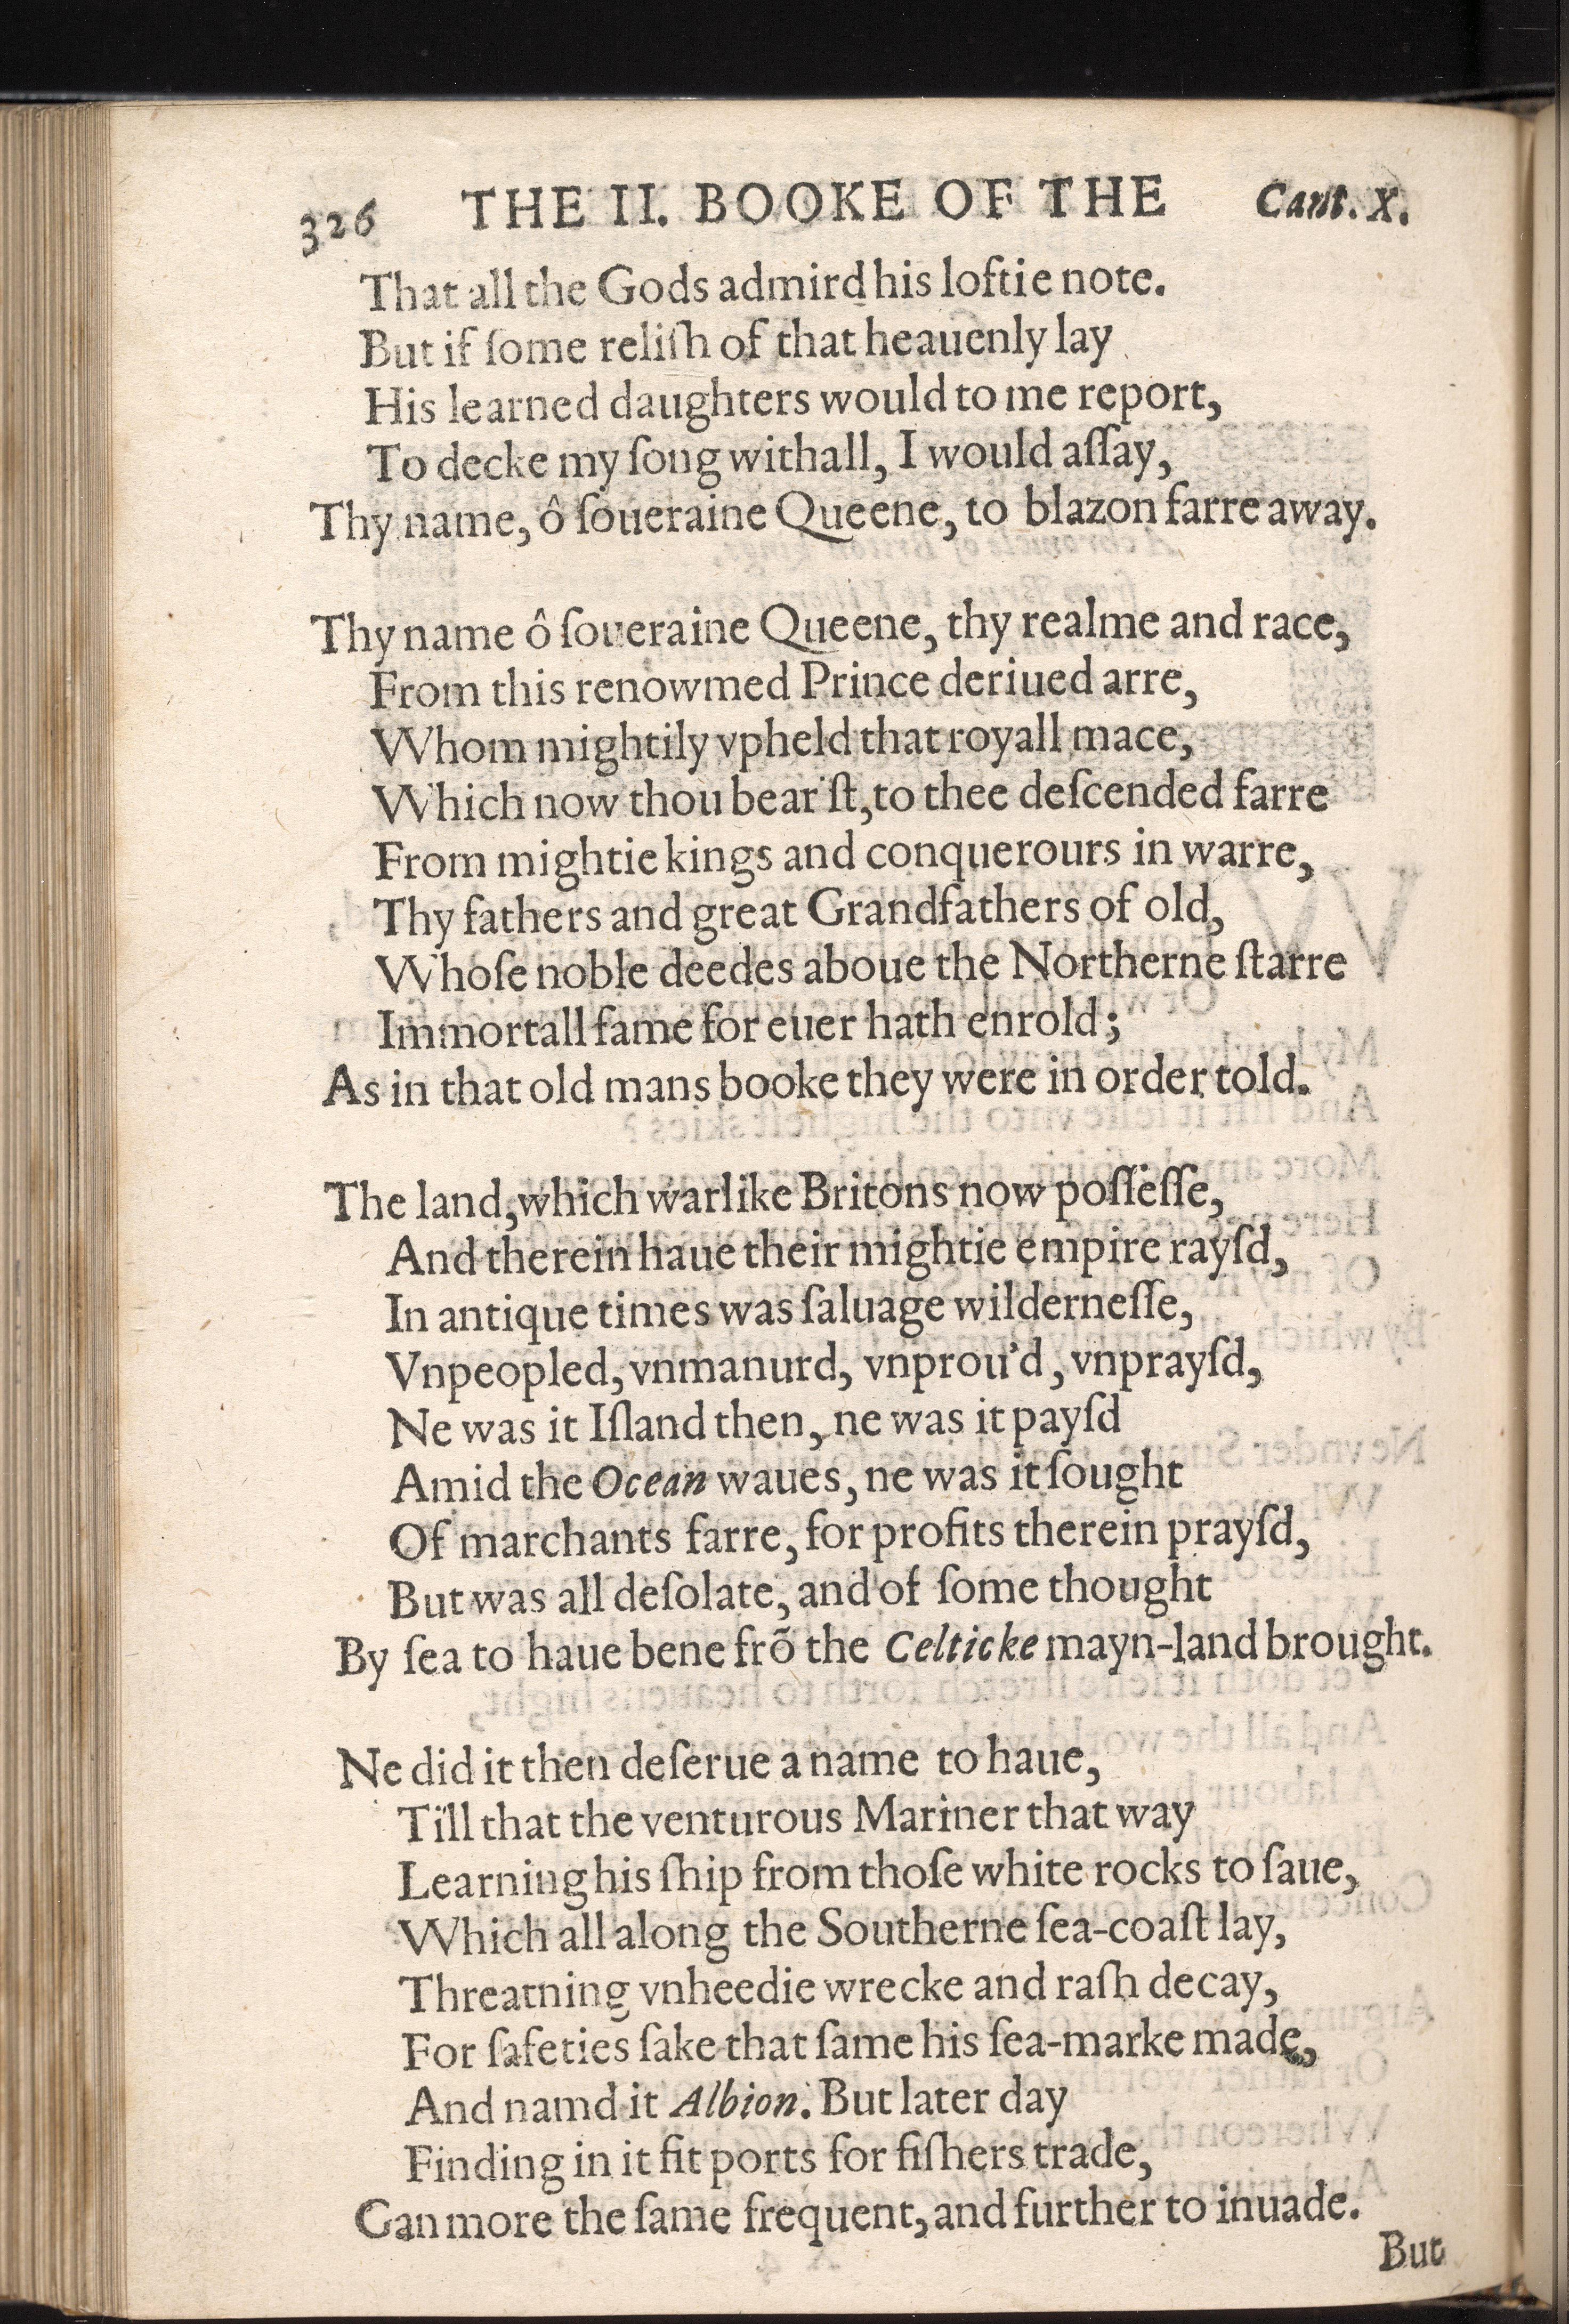 326 THE II. BOOKE OF THE Cant. X.
That all the Gods admird his loftie note.
But if ſome reliſh of that heauenly lay
His learned daughters would to me report,
To decke my ſong withall, I would aſſay,
Thy name, ô ſoueraine Queene, to blazon farre away.
Thy name ô ſoueraine Queene, thy realme and race,
From this renowmed Prince deriued arre,
Whom mightily vpheld that royall mace,
Which now thou bear'ſt, to thee deſcended farre
From mightie kings and conquerours in warre,
Thy fathers and great Grandfathers of old,
Whoſe noble deedes aboue the Northerne ſtarre
Immortall fame for euer hath enrold;
As in that old mans booke they were in order told.
The land, which warlike Britons now poſſeſſe,
And therein haue their mightie empire rayſd,
In antique times was ſaluage wilderneſſe,
Vnpeopled, vnmanurd, vnprou'd, vnprayſd,
Ne was it Iſland then, ne was it payſd
Amid the Ocean waues, ne was it ſought
Of marchants farre, for profits therein prayſd,
But was all deſolate, and of ſome thought
By ſea to haue bene frõ the Celticke mayn-land brought.
Ne did it then deſerue a name to haue,
Till that the venturous Mariner that way
Learning his ſhip from thoſe white rocks to ſaue,
Which all along the Southerne ſea-coaſt lay,
Threatning vnheedie wrecke and raſh decay,
For ſafeties ſake that ſame his ſea-marke made,
And namd it Albion. But later day
Finding in it fit ports for fiſhers trade,
Gan more the ſame frequent, and further to inuade.
But